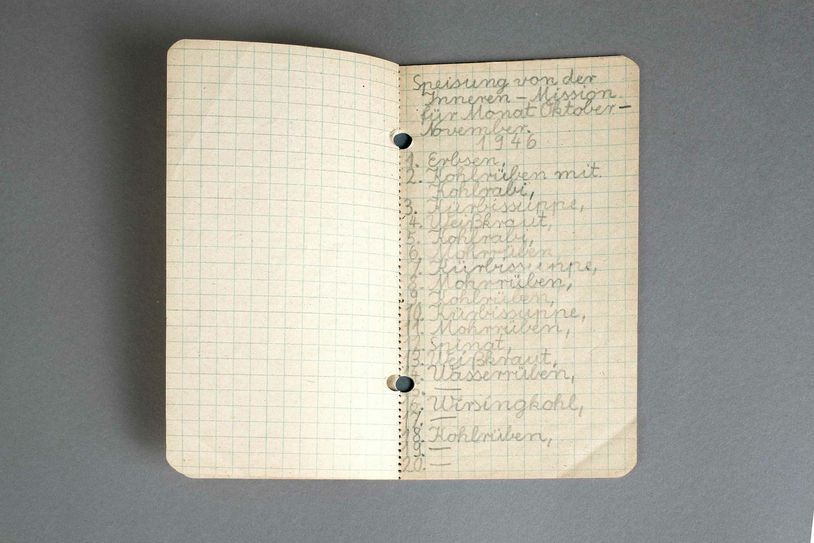 Speisung von der
Inneren – Mission
für Monat Oktober –
November.
1946
1. Erbsen,
2. Kohlrüben mit
Kohlrabi,
3. Kürbissuppe,
4. Weißkraut,
5. Kohlrabi,
6. Mohrrüben
7. Kürbissuppe,
8. Mohrrüben,
9. Kohlrüben,
10. Kürbissuppe,
11. Mohrrüben,
12. Spinat,
13. Weißkraut,
14. Wasserrüben,
15. —
16. Wirsingkohl,
17. —
18. Kohlrüben,
19. —
20. —